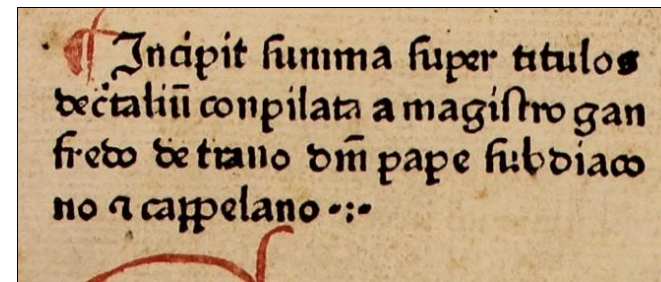 ¶ Incipit summa super titulos
decͬtaliū conpilata a magistro gan
fredo de trano dm̄ pape subdiaco
no ⁊ cappelano ·:·